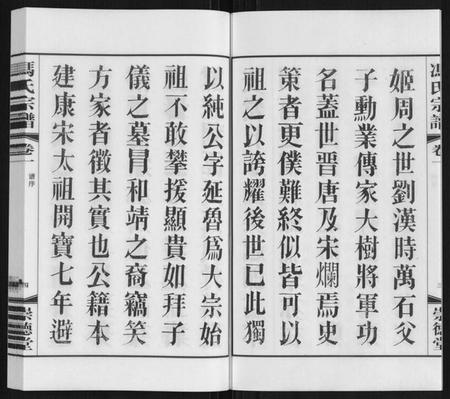 馮氏宗譜
卷一
三
崇德堂
姬周之世劉漢時萬石父
子勳業傳家大樹將軍功
名蓋世晉唐及宋爛焉史
策者更僕難終似皆可以
祖之以誇耀後世已此獨
以純公字延魯爲大宗始
祖不敢攀援顯貴如拜子
儀之墓冐和靖之裔竊笑
方家者徵其實也公籍本
建康宋太祖開寶七年避
馮氏宗譜
卷一
譜序
四
崇德堂